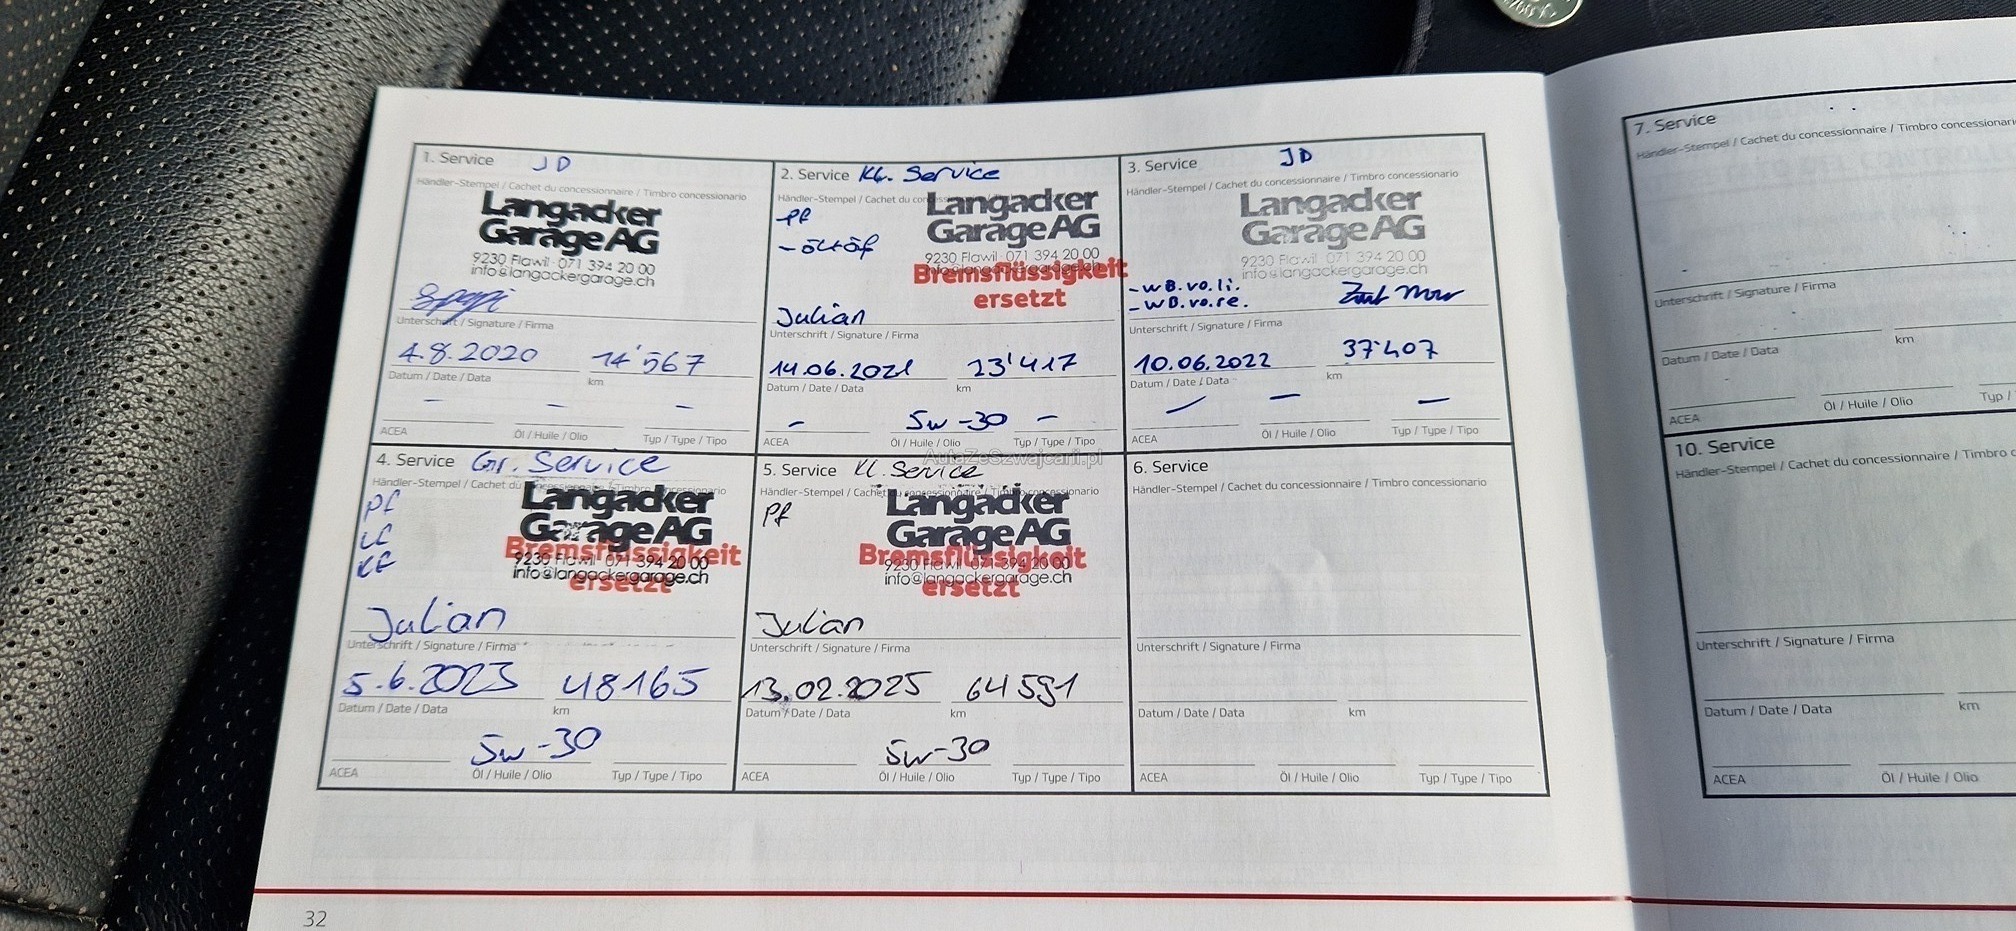 1. Service JD
Händler-Stempel / Cachet du concessionnaire / Timbro concessionario
Langacker
Garage AG
9230 Flawil · 071 394 20 00
info@langackergarage.ch
Unterschrift / Signature / Firma
4.8.2020 14'567
Datum / Date / Data km
- - -
ACEA Öl / Huile / Olio Typ / Type / Tipo
2. Service Kl. Service
Händler-Stempel / Cachet du
Pf
Langacker
Garage AG
9230 Flawil · 071 394 20 00
info@langackergarage.ch
Bremsflüssigkeit
ersetzt
Julian
Unterschrift / Signature / Firma
14.06.2021 23'417
Datum / Date / Data km
- 5w-30 -
ACEA Öl / Huile / Olio Typ / Type / Tipo
3. Service JD
Händler-Stempel / Cachet du concessionnaire / Timbro concessionario
Langacker
Garage AG
9230 Flawil · 071 394 20 00
info@langackergarage.ch
- WB.vo.li.
- WB.vo.re.
Unterschrift / Signature / Firma
10.06.2022 37'407
Datum / Date / Data km
- - -
ACEA Öl / Huile / Olio Typ / Type / Tipo
AutaZeSzwajcarii.pl
4. Service Gr. Service
Händler-Stempel / Cachet du concessionnaire / Timbro concessionario
Pf
Lf
Kf
Langacker
Garage AG
Bremsflüssigkeit
ersetzt
9230 Flawil · 071 394 20 00
info@langackergarage.ch
Julian
Unterschrift / Signature / Firma
5.6.2023 48165
Datum / Date / Data km
5w-30
ACEA Öl / Huile / Olio Typ / Type / Tipo
5. Service Kl. Service
Händler-Stempel / Cachet du concessionnaire / Timbro concessionario
Pf
Langacker
Garage AG
Bremsflüssigkeit
ersetzt
9230 Flawil · 071 394 20 00
info@langackergarage.ch
Julian
Unterschrift / Signature / Firma
13.02.2025 64591
Datum / Date / Data km
5w-30
ACEA Öl / Huile / Olio Typ / Type / Tipo
6. Service
Händler-Stempel / Cachet du concessionnaire / Timbro concessionario
Unterschrift / Signature / Firma
Datum / Date / Data km
ACEA Öl / Huile / Olio Typ / Type / Tipo
32
7. Service
Händler-Stempel / Cachet du concessionnaire / Timbro concessionari
Unterschrift / Signature / Firma
Datum / Date / Data km
ACEA Öl / Huile / Olio Typ /
10. Service
Händler-Stempel / Cachet du concessionnaire / Timbro c
Unterschrift / Signature / Firma
Datum / Date / Data km
ACEA Öl / Huile / Olio